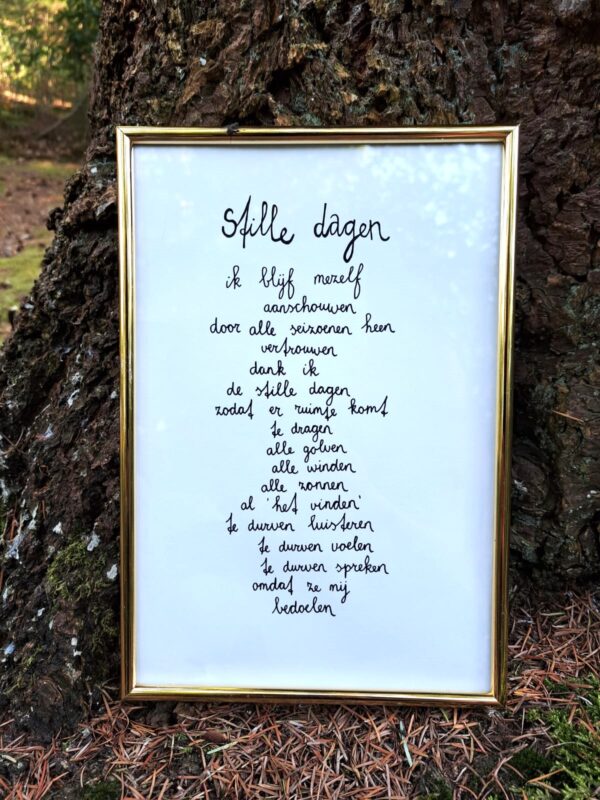 stille dagen
ik blijf mezelf
aanschouwen
door alle seizoenen heen
vertrouwen
dank ik
de stille dagen
zodat er ruimte komt
te dragen
alle golven
alle winden
alle zonnen
al 'het vinden'
te durven luisteren
te durven voelen
te durven spreken
omdat ze mij
bedoelen